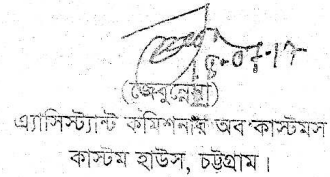 18-07-17
(জেবুন্নেছা)
এ্যাসিস্ট্যান্ট কমিশনার অব কাস্টমস
কাস্টম হাউস, চট্টগ্রাম।